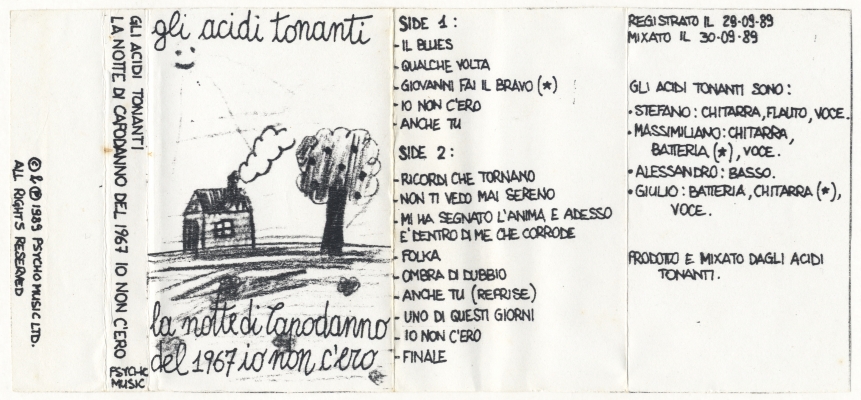 © & ℗ 1989 PSYCHO MUSIC LTD.
ALL RIGHTS RESERVED
GLI ACIDI TONANTI
LA NOTTE DI CAPODANNO DEL 1967 IO NON C'ERO
PSYCHO
MUSIC
gli acidi tonanti
la notte di Capodanno
del 1967 io non c'ero
SIDE 1:
- IL BLUES
- QUALCHE VOLTA
- GIOVANNI FAI IL BRAVO (*)
- IO NON C'ERO
- ANCHE TU
SIDE 2:
- RICORDI CHE TORNANO
- NON TI VEDO MAI SERENO
- MI HA SEGNATO L'ANIMA E ADESSO
E' DENTRO DI ME CHE CORRODE
- FOLKA
- OMBRA DI DUBBIO
- ANCHE TU (REPRISE)
- UNO DI QUESTI GIORNI
- IO NON C'ERO
- FINALE
REGISTRATO IL 29-09-89
MIXATO IL 30-09-89
GLI ACIDI TONANTI SONO:
• STEFANO: CHITARRA, FLAUTO, VOCE.
• MASSIMILIANO: CHITARRA,
BATTERIA (*), VOCE.
• ALESSANDRO: BASSO.
• GIULIO: BATTERIA, CHITARRA (*),
VOCE.
PRODOTTO E MIXATO DAGLI ACIDI
TONANTI.